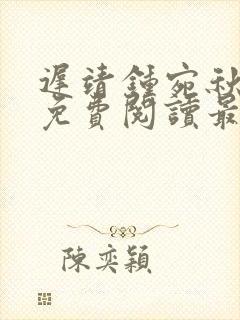 遲靖鍾宛秋
免費閱讀最
陳奕穎